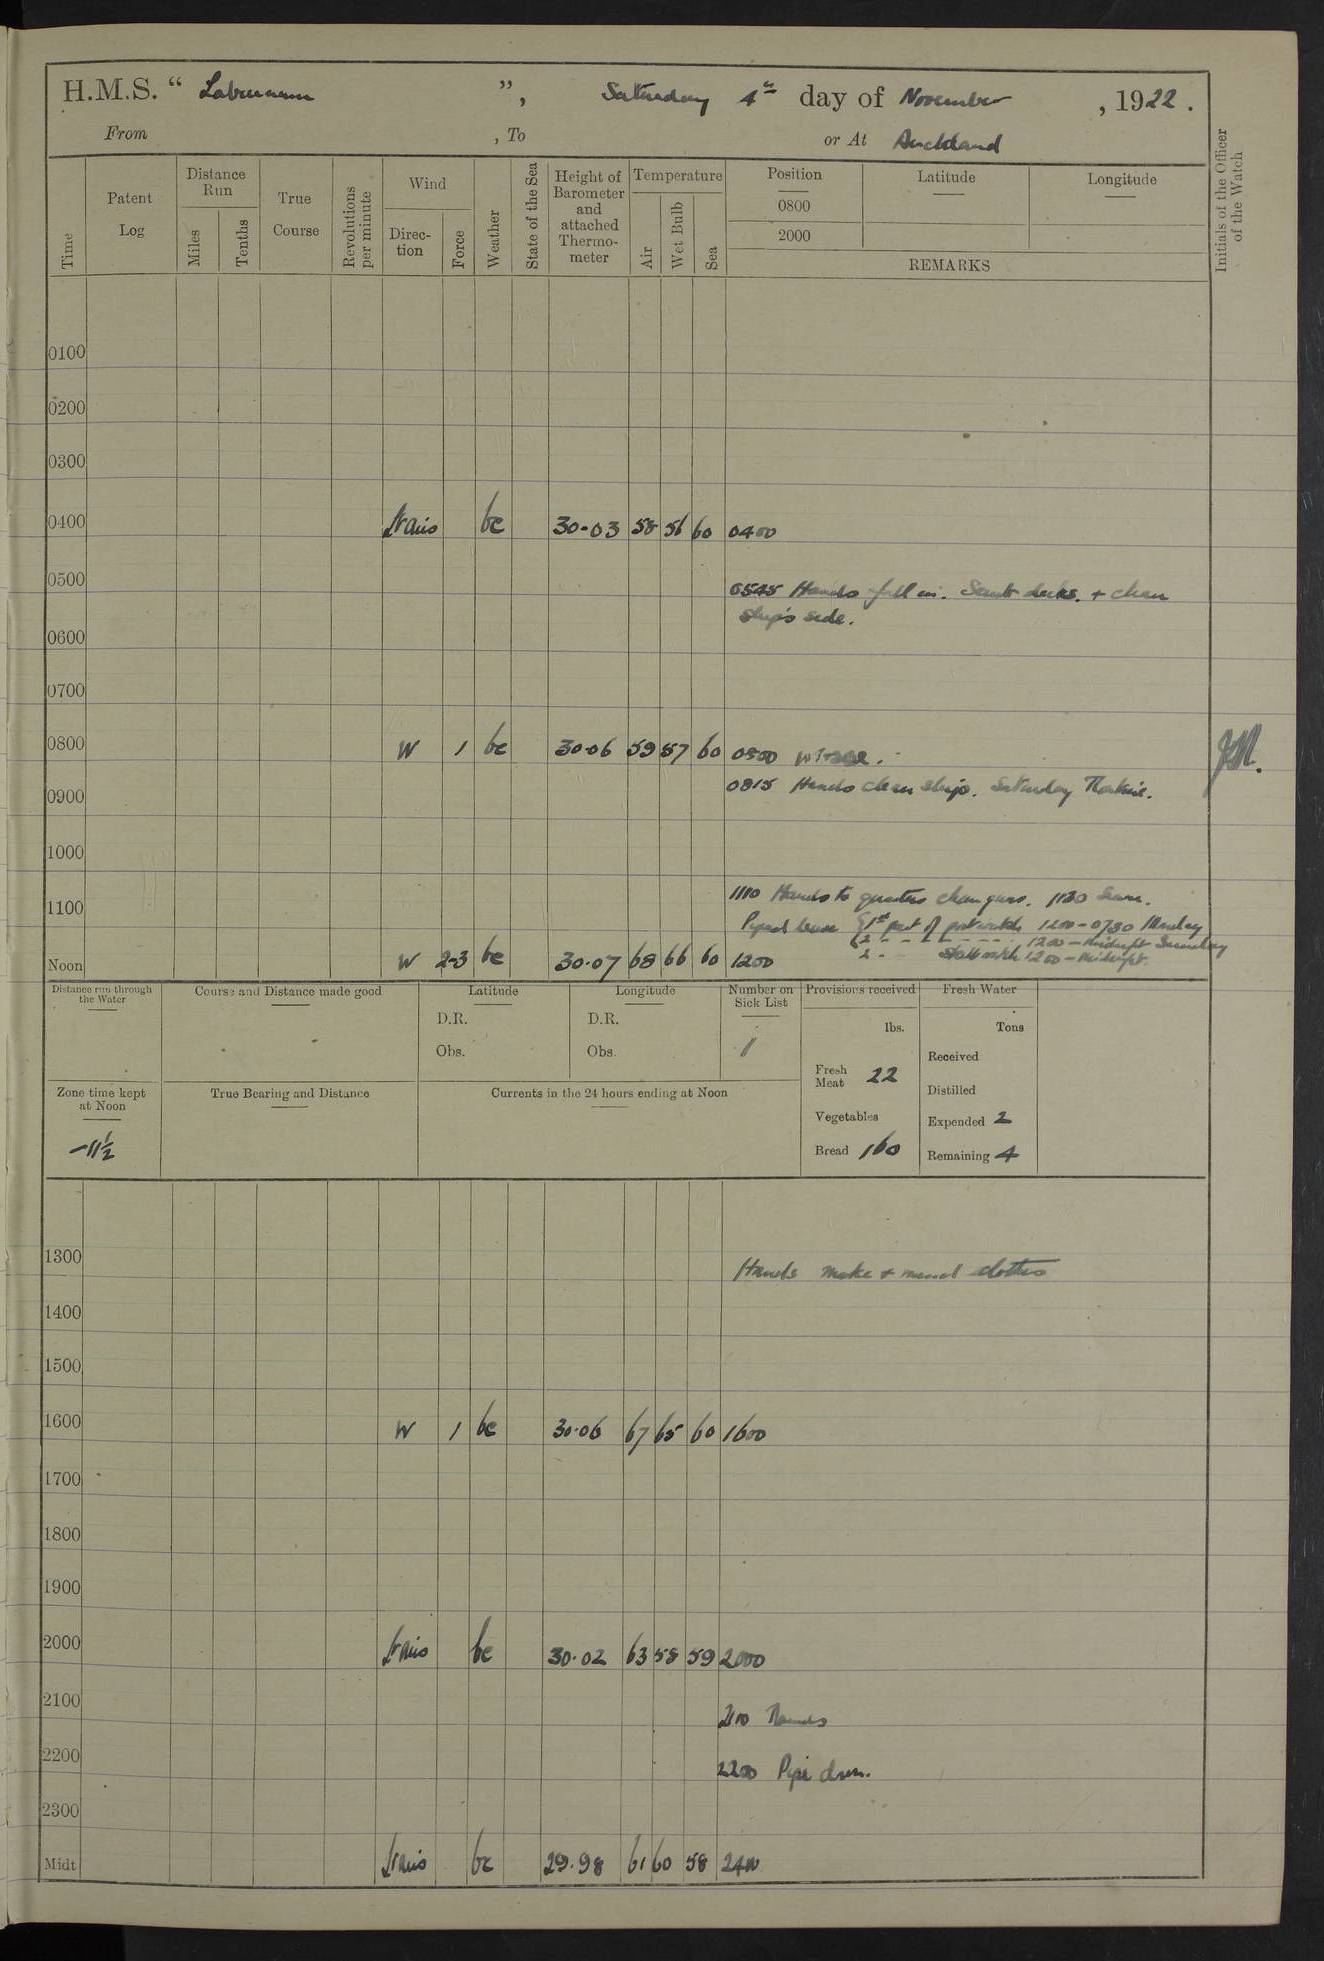 H.M.S. “ Laburnum ”, Saturday 4th day of November, 1922.
From , To or At Auckland
Time
Patent Log
Distance Run
Miles
Tenths
True Course
Revolutions per minute
Wind
Direction
Force
Weather
State of the Sea
Height of Barometer and attached Thermometer
Temperature
Air
Wet Bulb
Sea
Position
0800
2000
Latitude
Longitude
REMARKS
Initials of the Officer of the Watch
0100
0200
0300
0400 bc 30.03 58 56 60 0400
0500 0545 Hands fall in. Scrub decks. + clean
ship's side.
0600
0700
0800 W 1 bc 30.06 59 57 60 0800
0815 Hands clean ship. Saturday Routine.
0900
1000
1110 Hands to quarters clean guns. 1130 Secure.
1100
Piped leave 1st part of port watch 1200-0730 Monday
2 - - - - - - 1200 - Midnight Sunday
2 - Stbd watch 1200 - Midnight.
Noon W 2-3 bc 30.07 68 66 60 1200
Distance run through the Water
Course and Distance made good
Latitude
D.R.
Obs.
Longitude
D.R.
Obs.
Number on Sick List
1
Provisions received
lbs.
Fresh Meat 22
Vegetables
Bread 160
Fresh Water
Tons
Received
Distilled
Expended 2
Remaining 4
Zone time kept at Noon
-11½
True Bearing and Distance
Currents in the 24 hours ending at Noon
1300 Hands make + mend clothes
1400
1500
1600 W 1 bc 30.06 67 65 60 1600
1700
1800
1900
2000 bc 30.02 63 58 59 2000
2100 2110 Rounds
2200 2200 Pipe down.
2300
Midt bc 29.98 61 60 58 2400